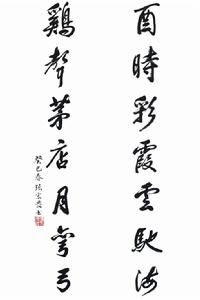 酉時彩霞雲馳海
鷄聲茅店月彎弓
癸巳春張宏